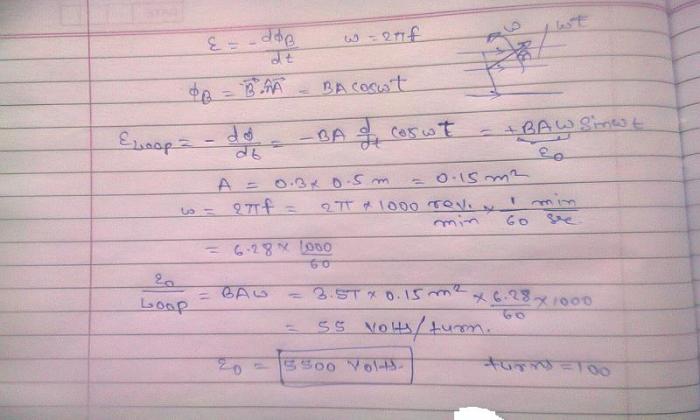 ε = - dφ_B/dt   ω = 2πf   ω   ωt
φ_B = B⃗.A⃗ = BA cosωt
ε_Loop = - dφ/dt = -BA d/dt cosωt = +BAω sinωt
ε₀
A = 0.3 × 0.5 m = 0.15 m²
ω = 2πf = 2π × 1000 rev./min × 1 min/60 sec
= 6.28 × 1000/60
ε₀/Loop = BAω = 3.5T × 0.15 m² × 6.28/60 × 1000
= 55 volts/turn.
ε₀ = 5500 volts.   turns = 100